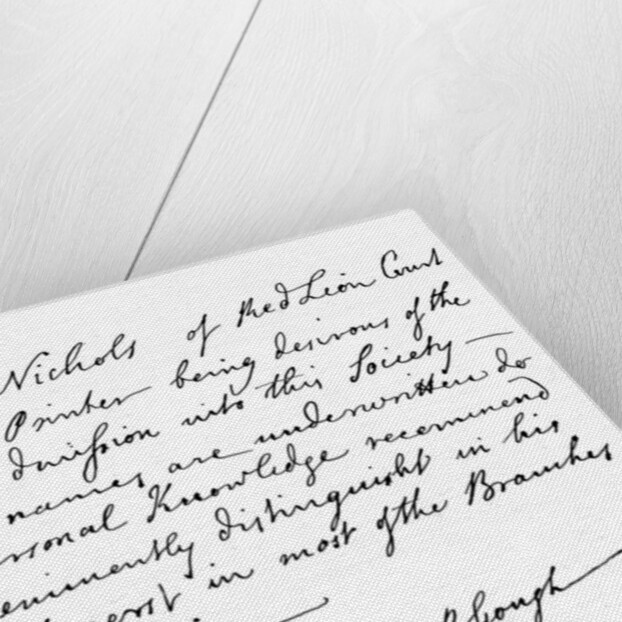 Nichols of Red Lion Court
Printer being desirous of the
dmission into this Society —
names are underwritten do
rsonal Knowledge recommend
eminently distinguisht in his
in most of the Branches
R Gough